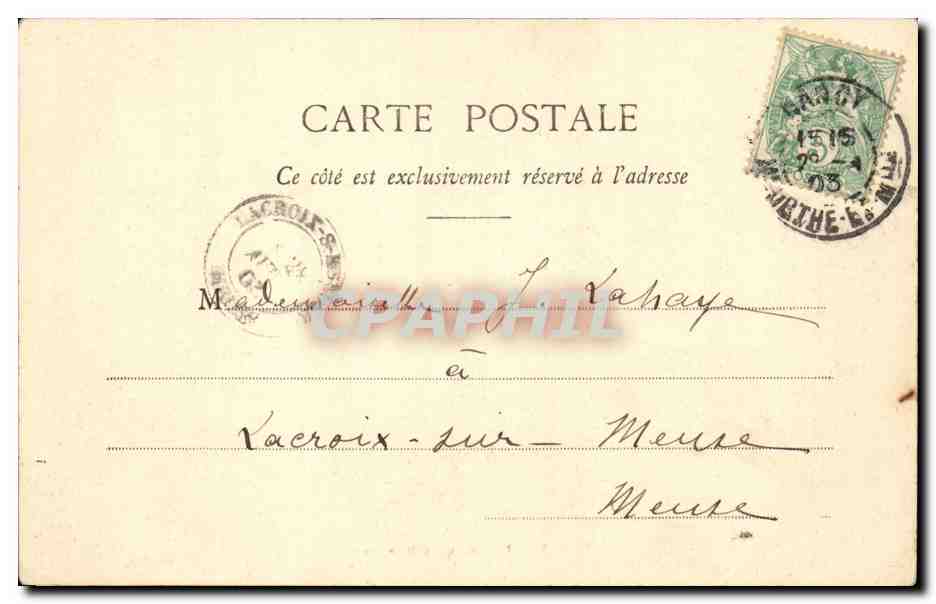 CARTE POSTALE
Ce côté est exclusivement réservé à l'adresse
NANCY
15 15
03
MEURTHE-ET-Mlle
LACROIX-S-MSE
Mademoiselle J. Lahaye
CPAPHIL
à
Lacroix-sur-Meuse
Meuse